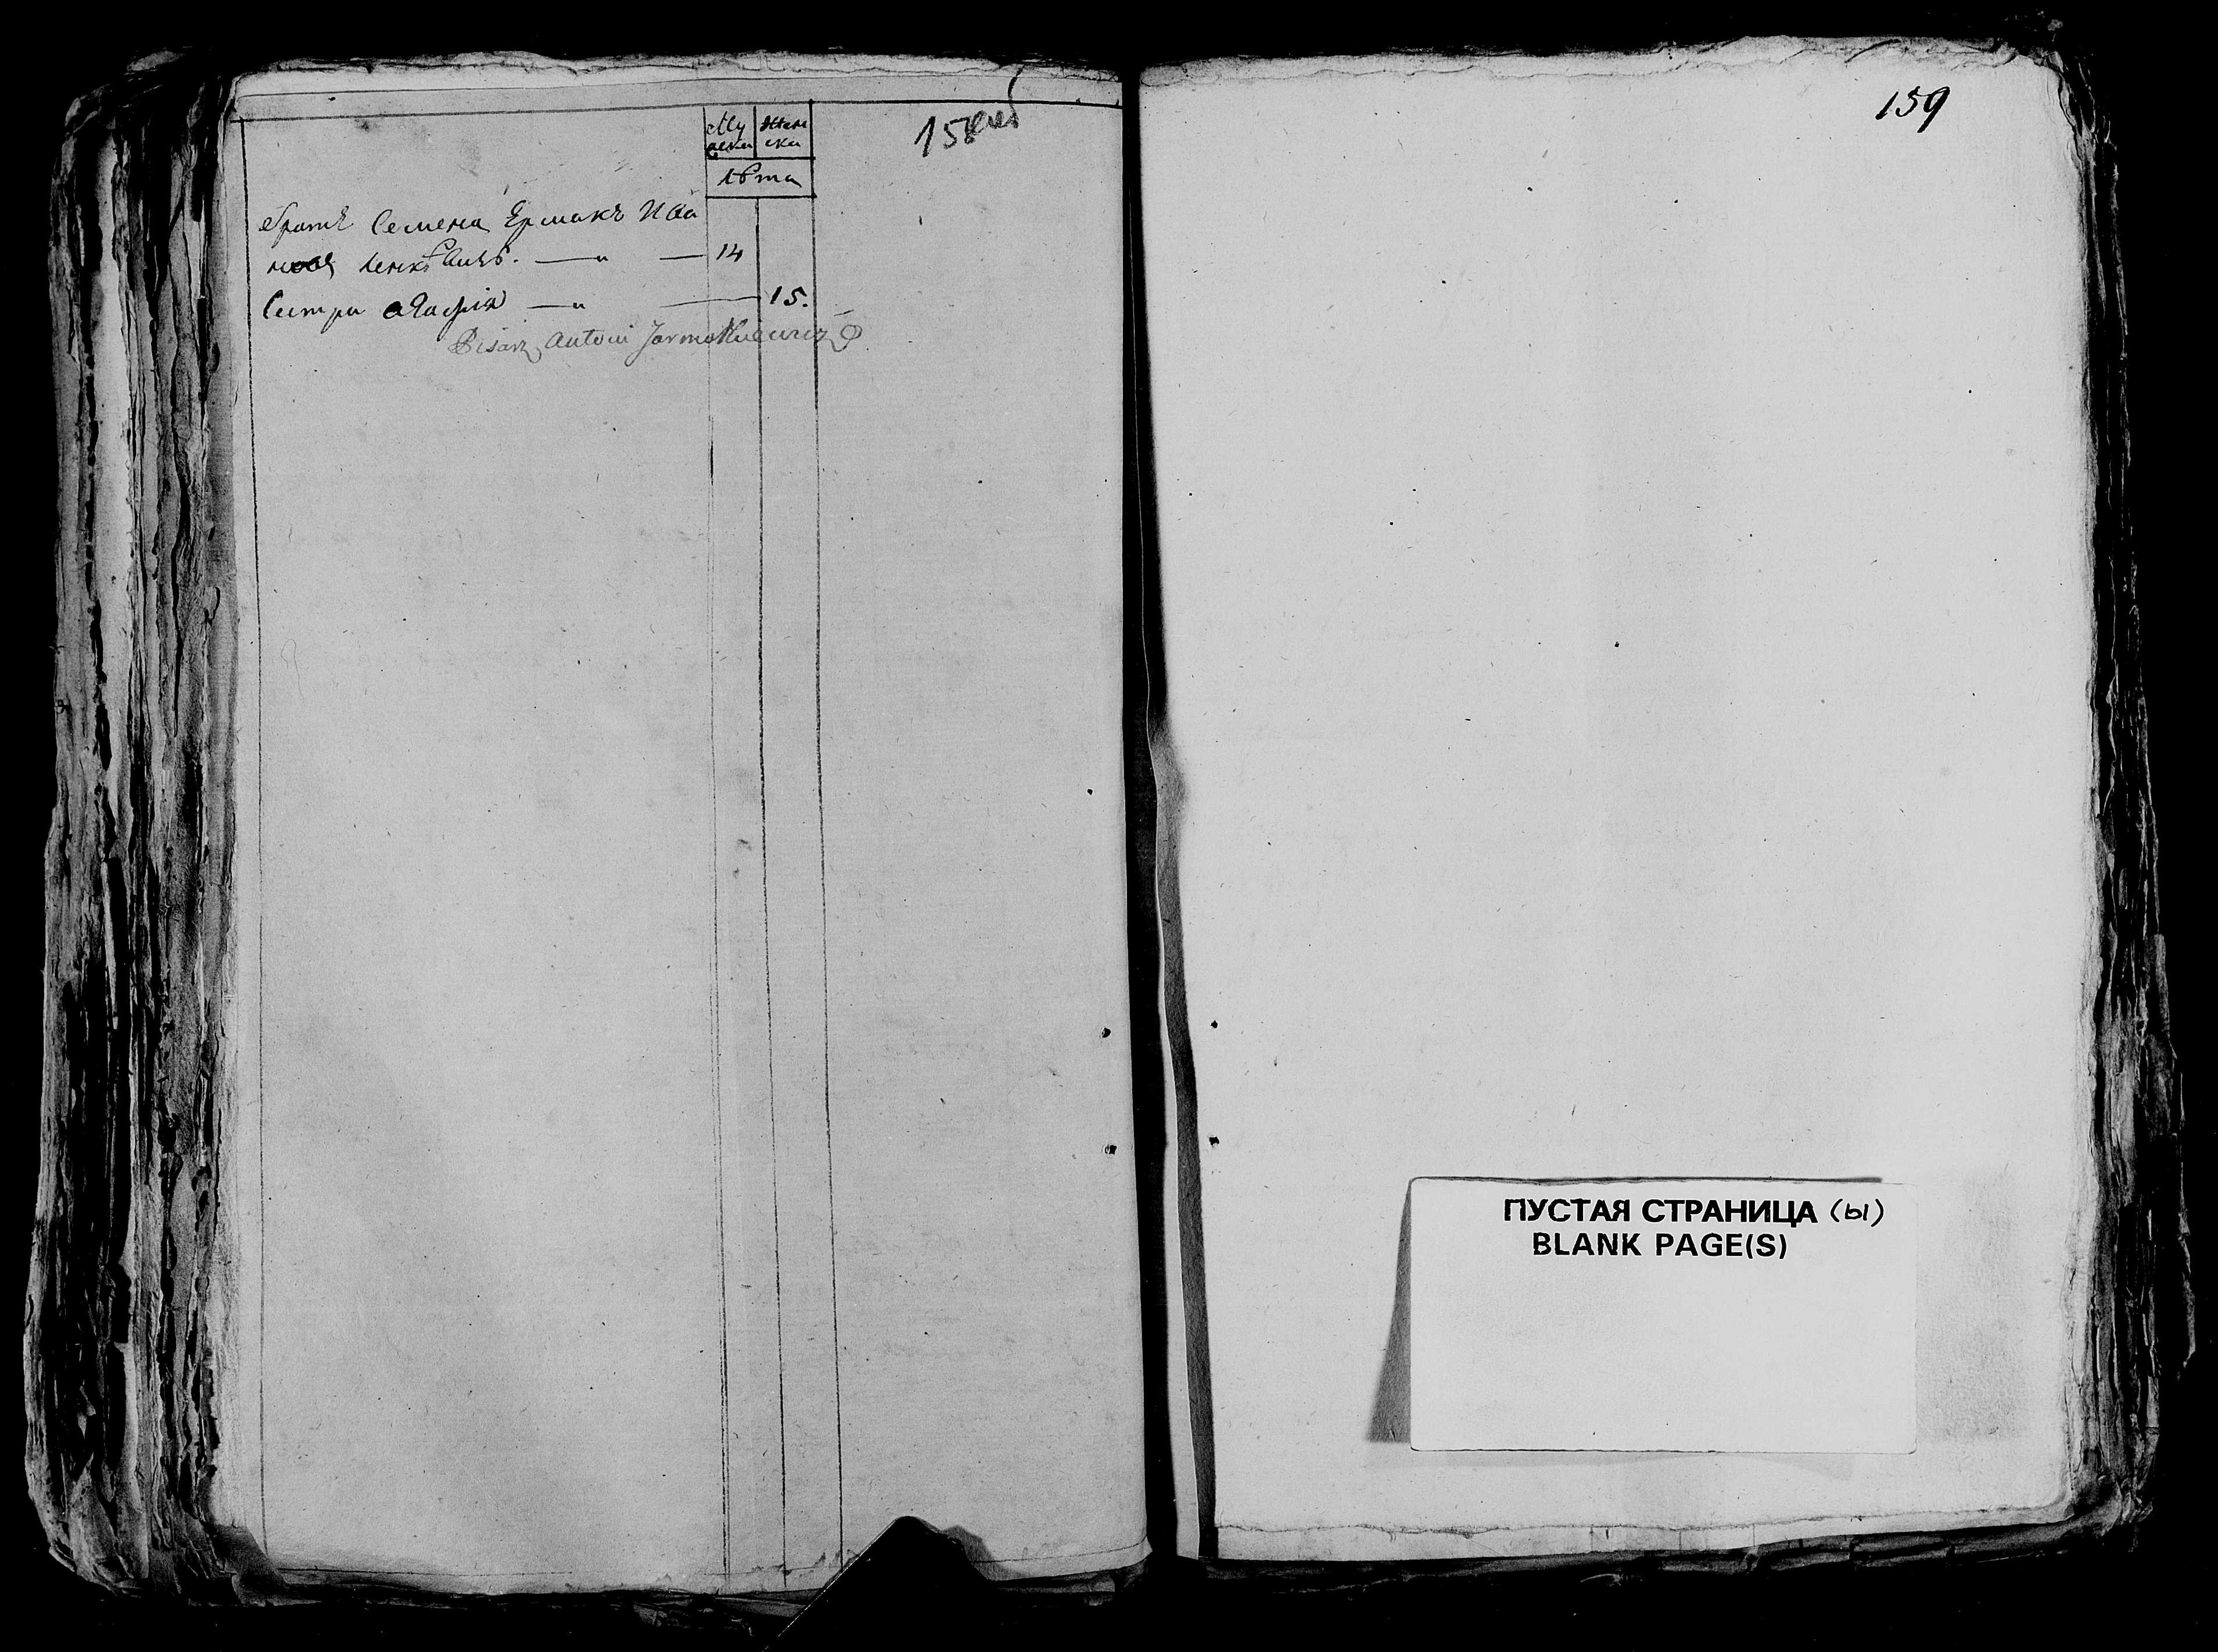 Му Жен
жска ска
лѣта
братъ Семена Ермакъ Ива
новъ
14
Сестра Агафія 15.
Pisarz Antoni Jarmołkiewicz
159
ПУСТАЯ СТРАНИЦА (ы)
BLANK PAGE(S)